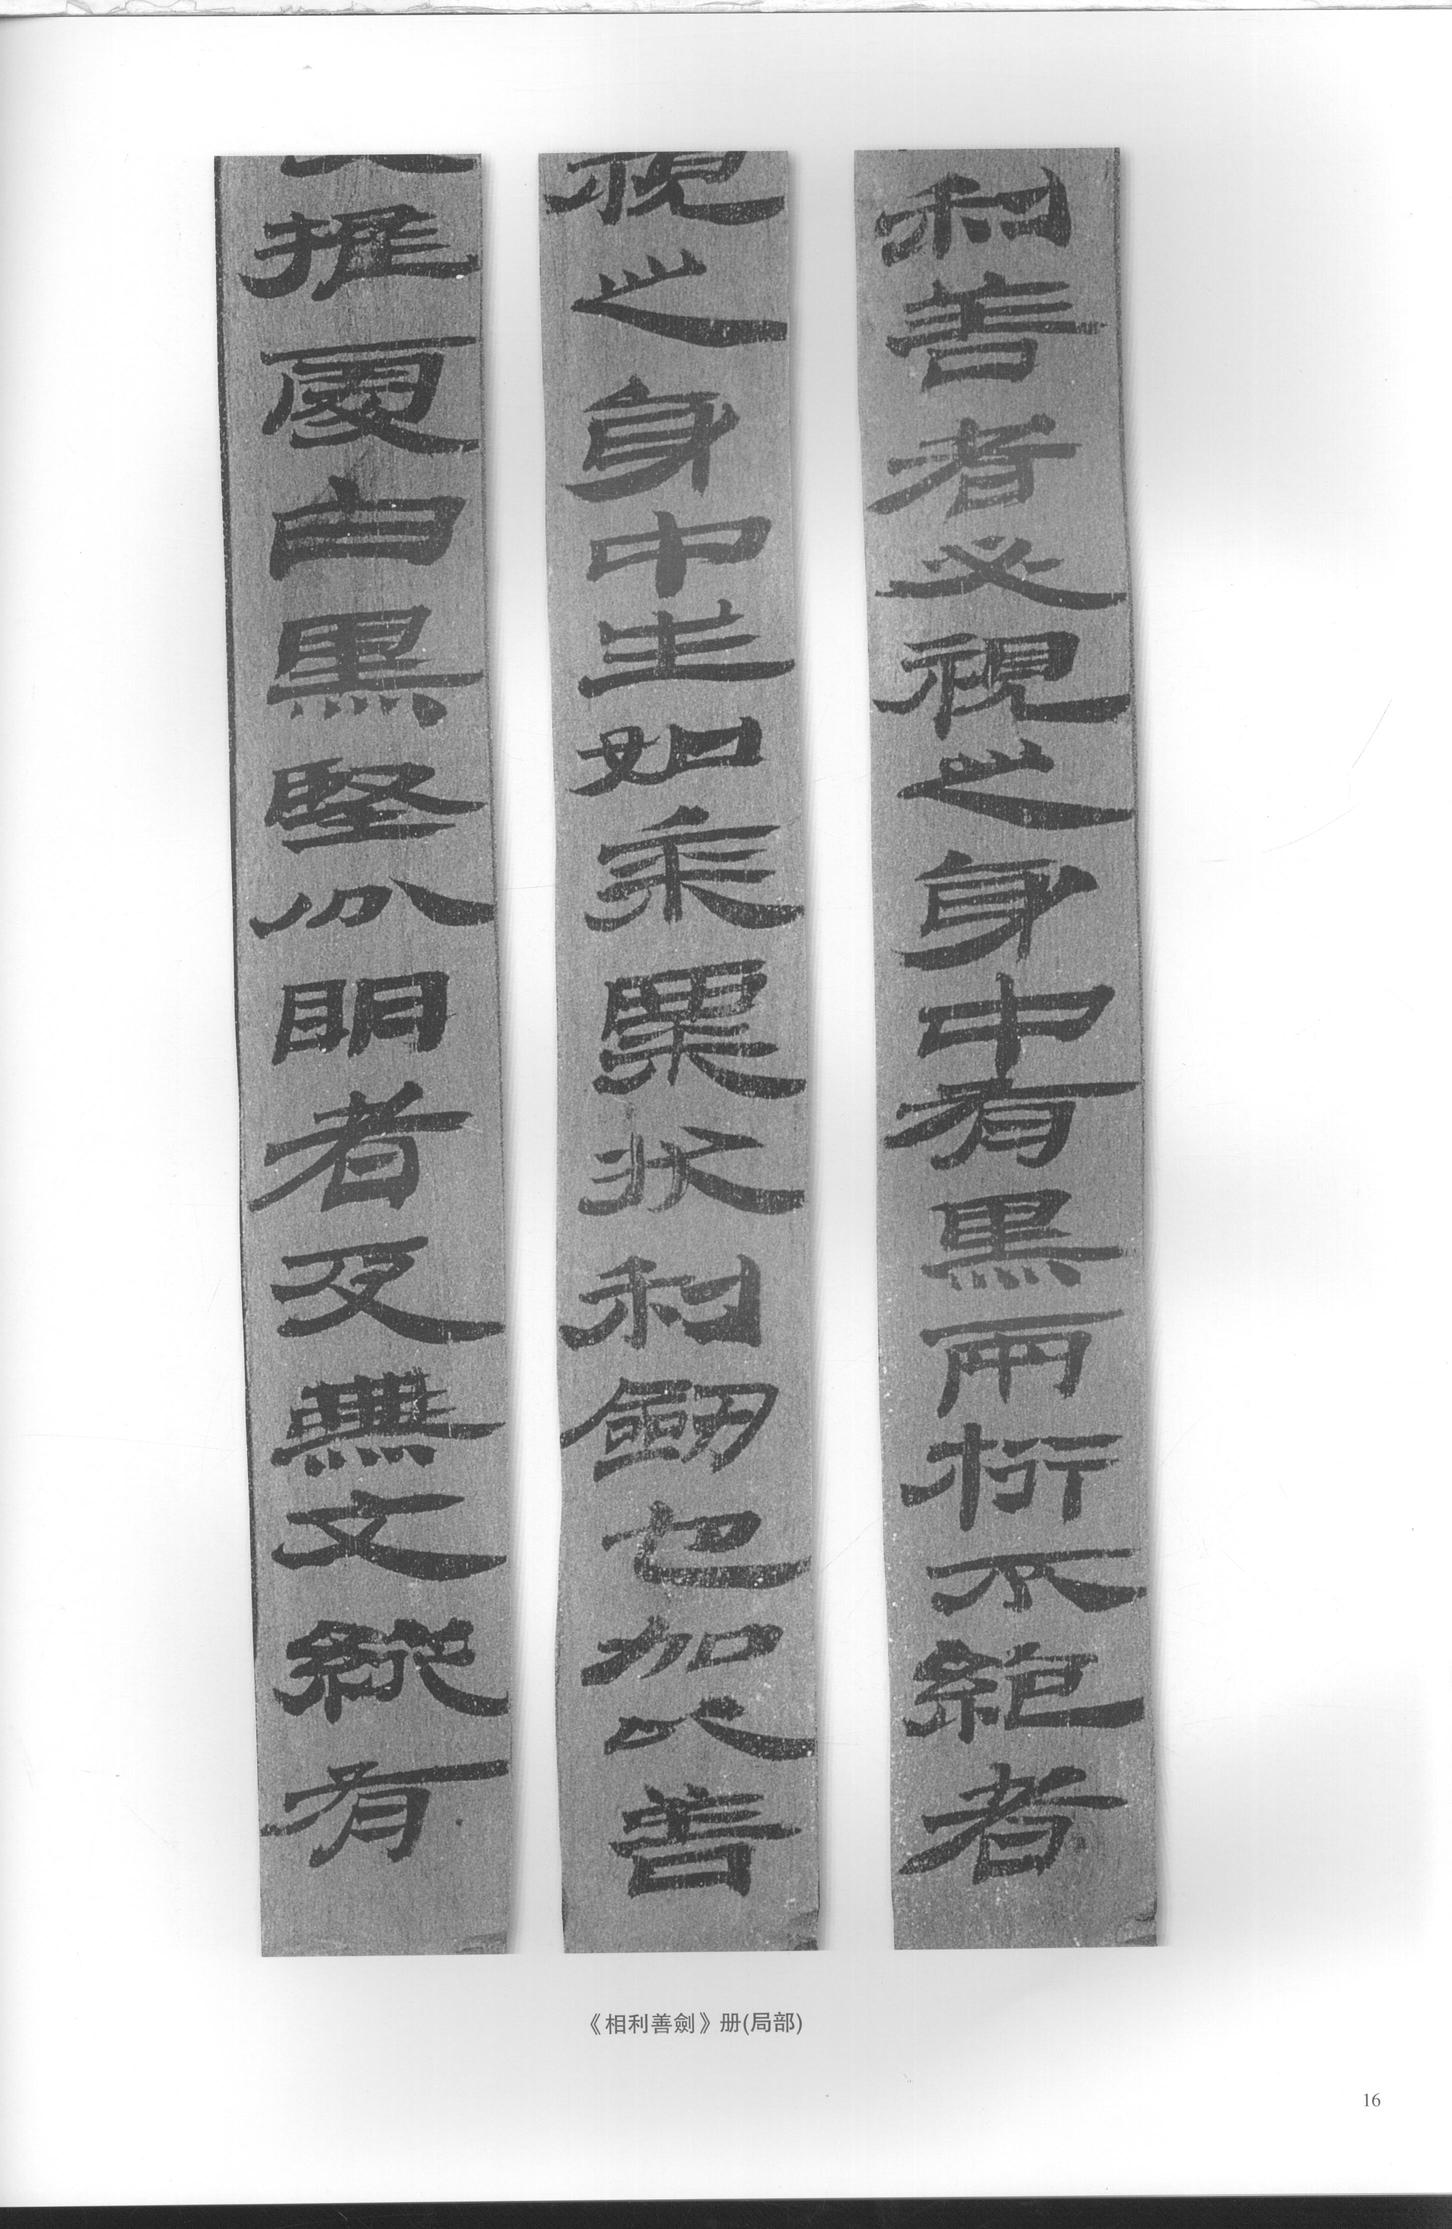 利善者必視之身中有黑兩桁不絕者
視之身中生如黍粟狀利劍也加以善
推處白黑堅分明者及無文縱有
《相利善劍》册(局部)
16